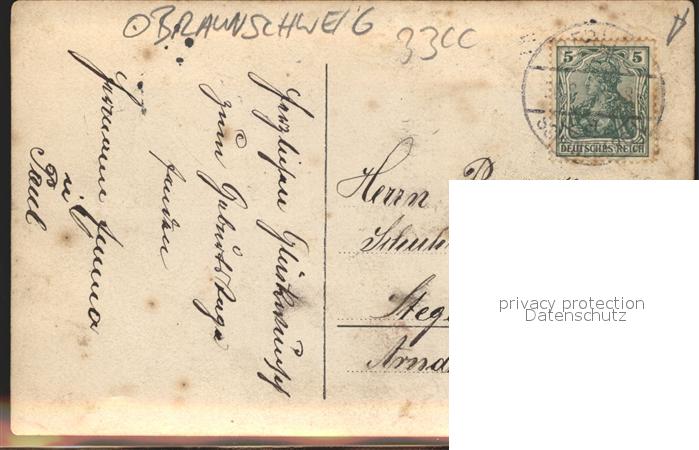 OBRAUNSCHWEIG
33CC
5 5
DEUTSCHES REICH
Herzlichen Glückwunsch
zum Geburtstage
senden
Hermann Emma
u.
Paul
Herrn
Steg
Arnd
privacy protection
Datenschutz